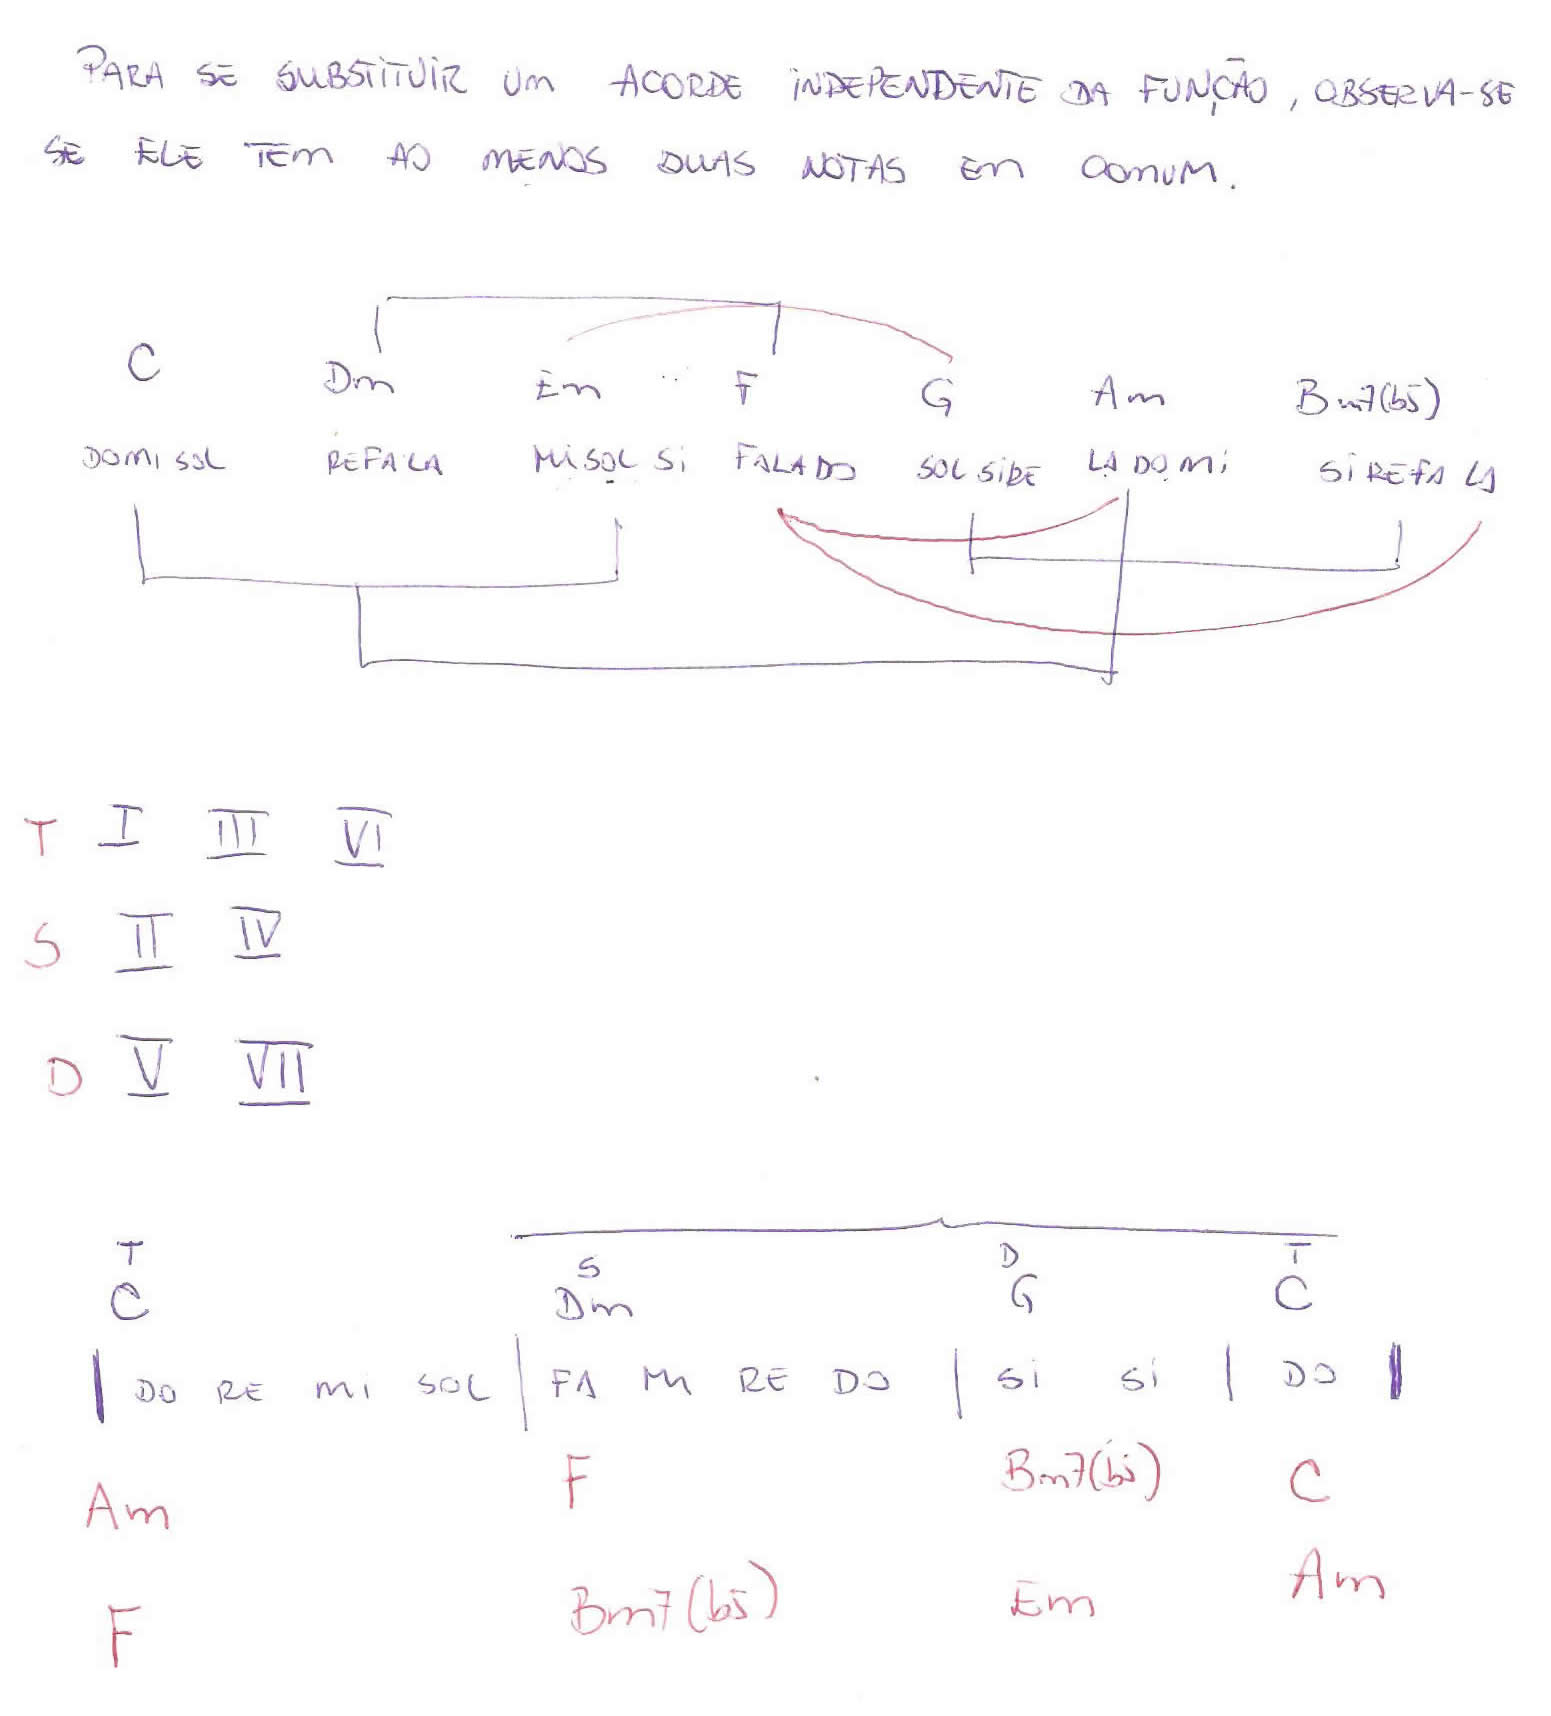 PARA SE SUBSTITUIR UM ACORDE INDEPENDENTE DA FUNÇÃO, OBSERVA-SE
SE ELE TEM AO MENOS DUAS NOTAS EM COMUM.
C Dm Em F G Am Bm7(b5)
DO MI SOL RE FA LA MI SOL SI FA LA DO SOL SI RE LA DO MI SI RE FA LA
T I III VI
S II IV
D V VII
T S D T
C Dm G C
DO RE MI SOL | FA MI RE DO | SI SI | DO
Am F Bm7(b5) C
F Bm7(b5) Em Am